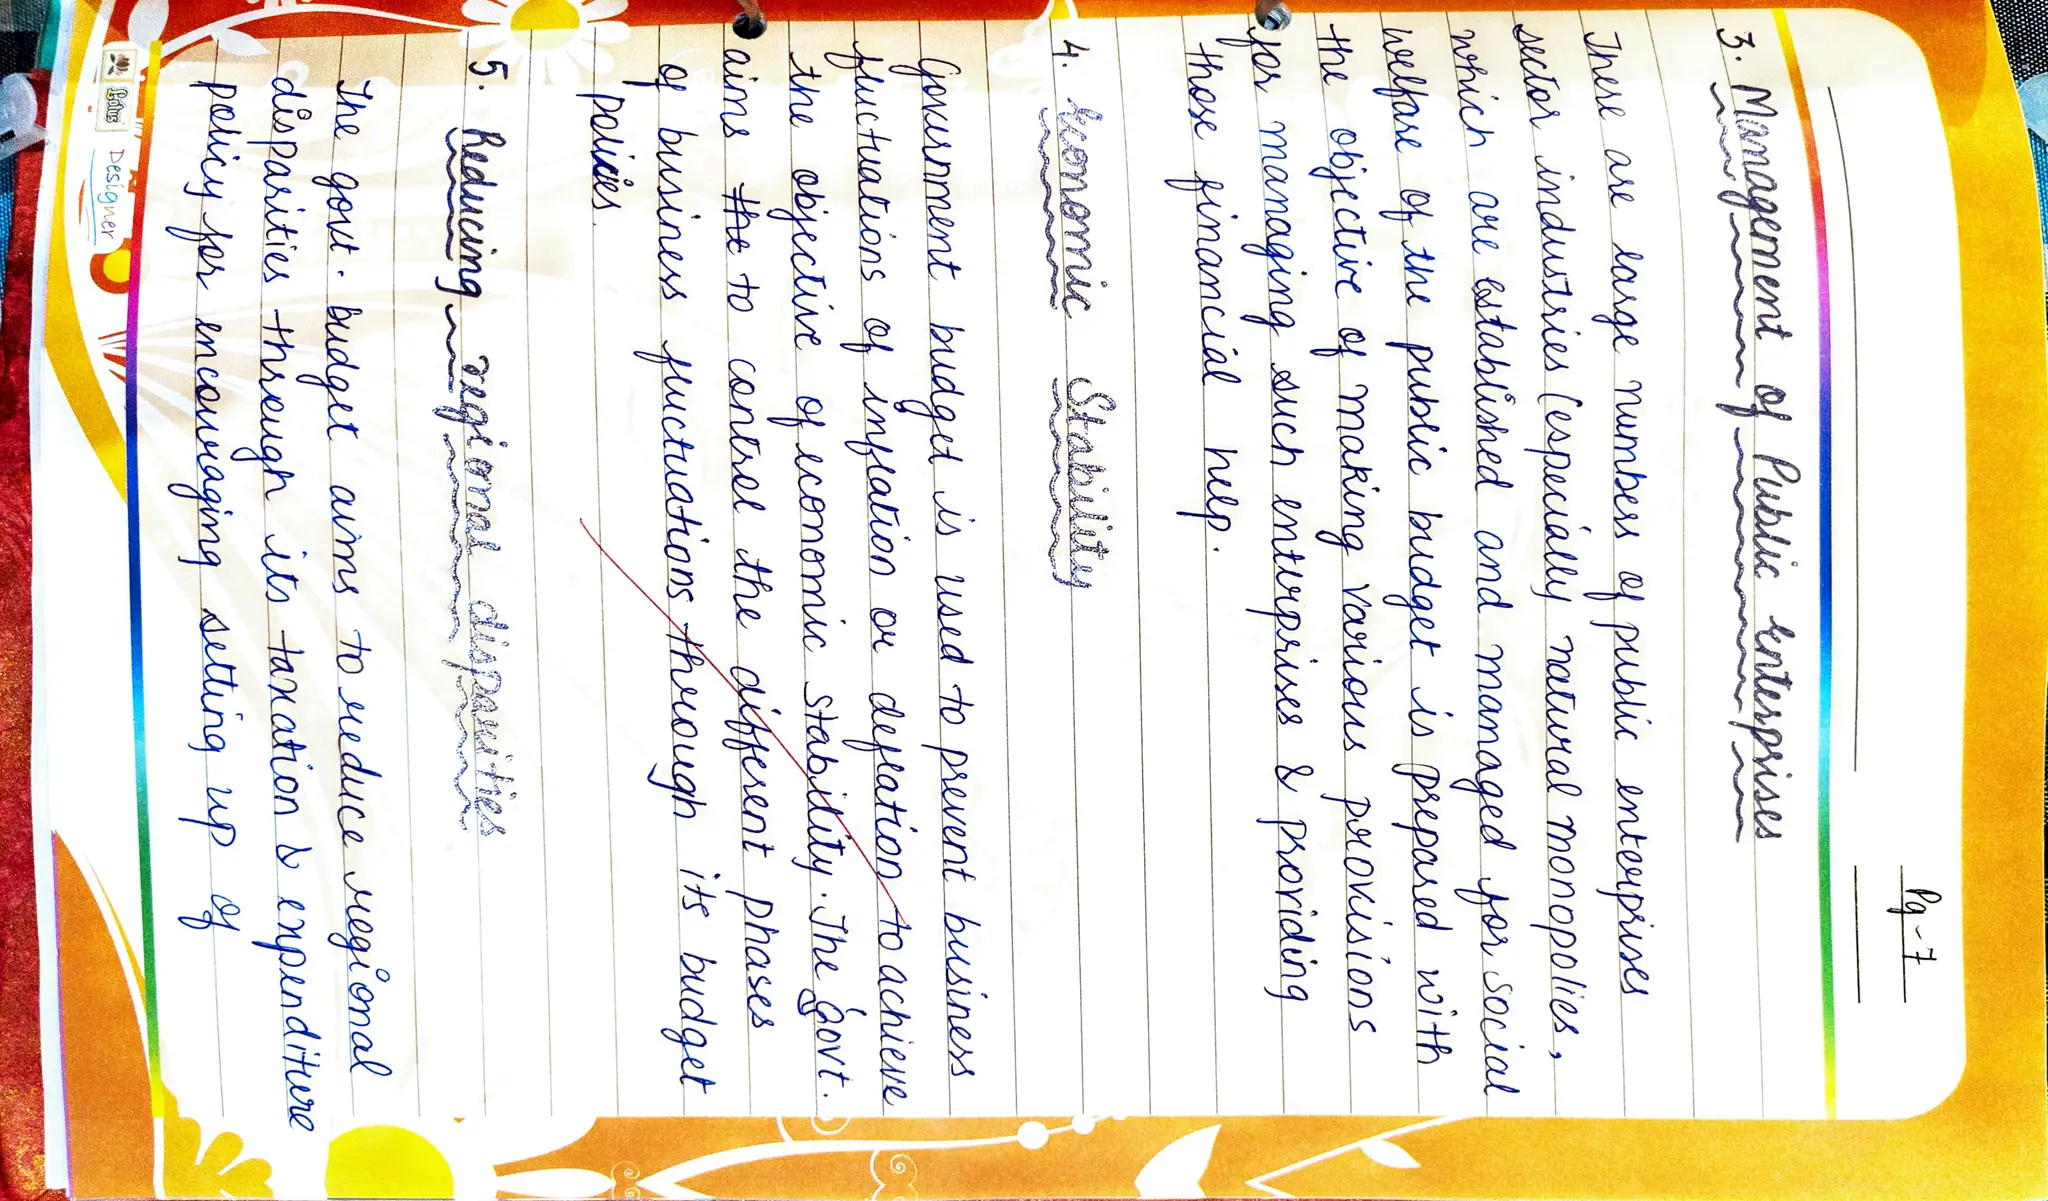 Pg-7
3. Management of Public Enterprises
There are large numbers of public enterprises
sector industries (especially natural monopolies,
which are established and managed for social
welfare of the public budget is prepared with
the objective of making various provisions
for managing such enterprises & providing
those financial help.
4. Economic Stability
Government budget is used to prevent business
fluctuations of inflation or deflation to achieve
the objective of economic stability. The govt.
aims the to control the different phases
of business fluctuations through its budget
policies.
5. Reducing regional disparities
The govt. budget aims to reduce regional
disparities through its taxation & expenditure
policy for encouraging setting up of
Lotus Designer